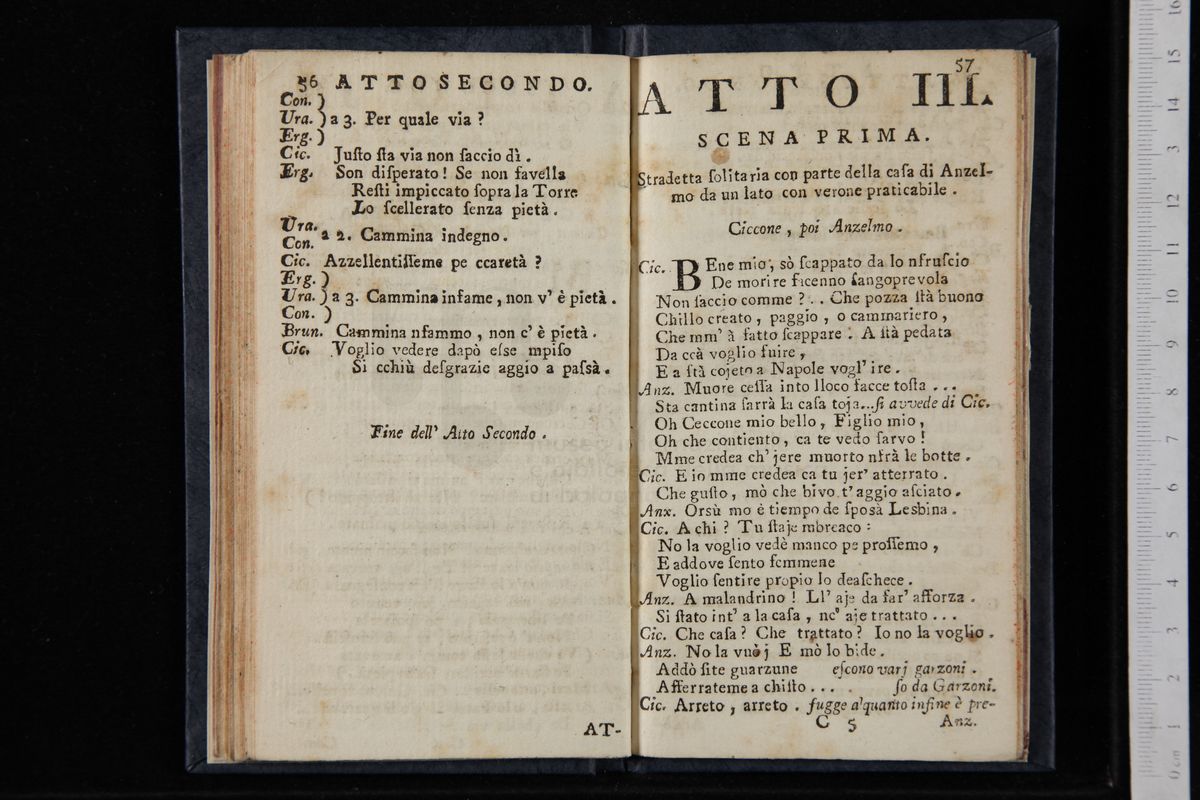 56 ATTO SECONDO.
Con. )
Ura. ) a 3. Per quale via ?
Erg. )
Cic. Juſto ſta via non ſaccio dì .
Erg. Son diſperato! Se non favella
Reſti impiccato ſopra la Torre
Lo ſcellerato ſenza pietà .
Ura.
Con. a 2. Cammina indegno .
Cic. Azzellentiſſeme pe ccaretà ?
Erg. )
Ura. ) a 3. Cammina infame , non v' è pietà .
Con. )
Brun. Cammina nfammo , non c' è pietà .
Cic. Voglio vedere dapò eſse mpiſo
Si cchiù deſgrazie aggio a paſsà .
Fine dell' Atto Secondo .
AT-
57
ATTO III.
SCENA PRIMA.
Stradetta ſolitaria con parte della caſa di Anzel-
mo da un lato con verone praticabile .
Ciccone , poi Anzelmo .
Cic. BEne mio , sò ſcappato da lo nfruſcio
De morire ficenno ſangoprevola
Non ſaccio comme ? . . Che pozza ſtà buono
Chillo creato , paggio , o cammariero ,
Che mm' à fatto ſcappare . A ſtà pedata
Da ccà voglio fuire ,
E a ſtà cojeto a Napole vogl' ire .
Anz. Muore ceſſa into lloco facce toſta . . .
Sta cantina ſarrà la caſa toja...ſi avvede di Cic.
Oh Ceccone mio bello , Figlio mio ,
Oh che contiento , ca te vedo ſarvo !
Mme credea ch' jere muorto nfrà le botte .
Cic. E io mme credea ca tu jer' atterrato .
Che guſto , mò che bivo t' aggio aſciato .
Anx. Orsù mo è tiempo de ſposà Lesbina .
Cic. A chi ? Tu ſtaje mbreaco :
No la voglio vedè manco pe proſſemo ,
E addove ſento femmene
Voglio ſentire propio lo deaſchece .
Anz. A malandrino ! Ll' aje da far' afforza .
Si ſtato int' a la caſa , nc' aje trattato . . .
Cic. Che caſa ? Che trattato ? Io no la voglio .
Anz. No la vuò j E mò lo bide .
Addò ſite guarzune eſcono varj garzoni .
Afferrateme a chiſto . . . . ſo da Garzoni.
Cic. Arreto , arreto . fugge alquanto infine è pre-
C 5 Anz.